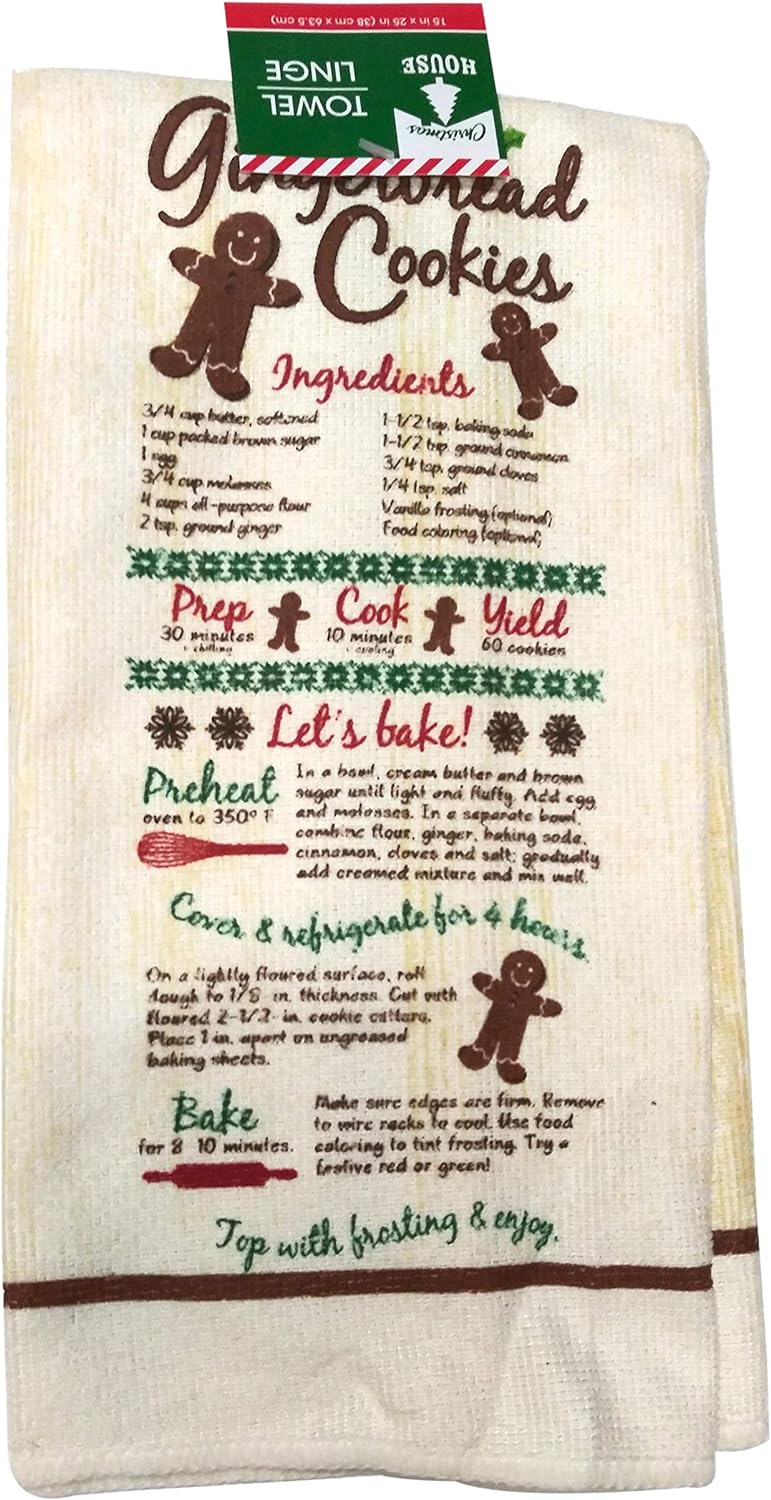 15 in x 25 in (38 cm x 63.5 cm)
TOWEL
LINGE
Christmas
HOUSE
Gingerbread
Cookies
Ingredients
3/4 cup butter, softened
1 cup packed brown sugar
1 egg
3/4 cup molasses
4 cups all-purpose flour
2 tsp. ground ginger
1-1/2 tsp. baking soda
1-1/2 tsp. ground cinnamon
3/4 tsp. ground cloves
1/4 tsp. salt
Vanilla frosting (optional)
Food coloring (optional)
Prep
30 minutes
+ chilling
Cook
10 minutes
+ cooling
Yield
60 cookies
Let's bake!
Preheat
oven to 350° F
In a bowl, cream butter and brown
sugar until light and fluffy. Add egg
and molasses. In a separate bowl,
combine flour, ginger, baking soda,
cinnamon, cloves and salt; gradually
add creamed mixture and mix well.
Cover & refrigerate for 4 hours.
On a lightly floured surface, roll
dough to 1/8-in. thickness. Cut with
floured 2-1/2-in. cookie cutters.
Place 1 in. apart on ungreased
baking sheets.
Bake
for 8 10 minutes.
Make sure edges are firm. Remove
to wire racks to cool. Use food
coloring to tint frosting. Try a
festive red or green!
Top with frosting & enjoy.